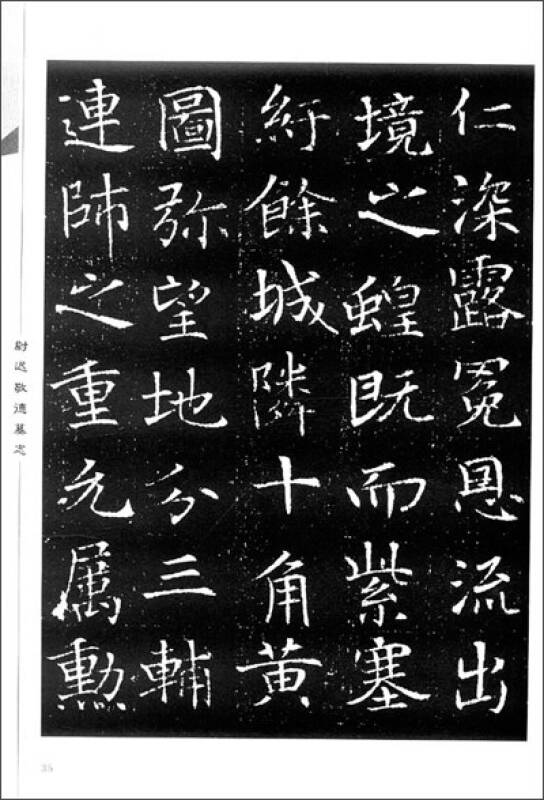 仁深露冕恩流出
境之蝗既而紫塞
紆餘城隣十角黄
圖弥望地分三輔
連帥之重允属勲
尉迟敬德墓志
35